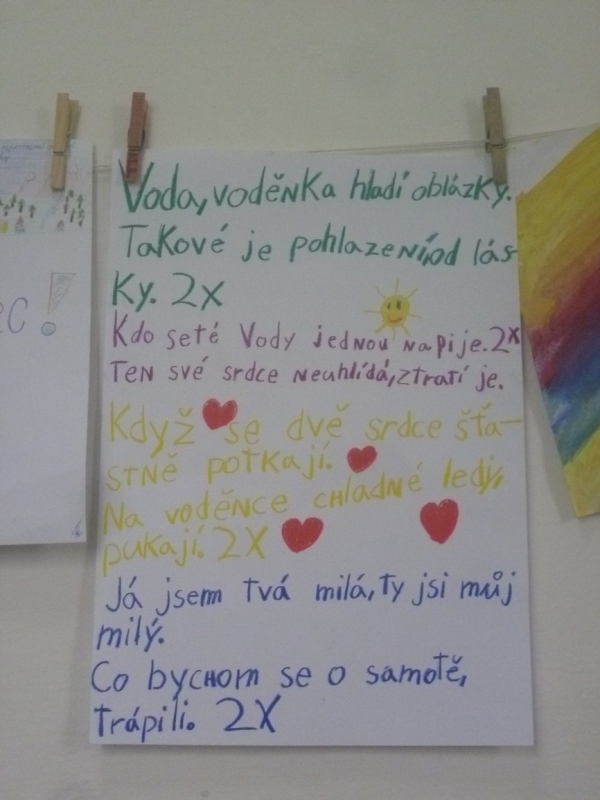 Voda, voděnka hladí oblázky.
Takové je pohlazení, od lás-
ky. 2x
Kdo seté Vody jednou napije. 2x
Ten své srdce neuhlídá, ztratí je.
Když se dvě srdce šťa-
stně potkají.
Na voděnce chladné ledy,
pukají. 2X
Já jsem tvá milá, ty jsi můj
milý.
Co bychom se o samotě,
trápili. 2X